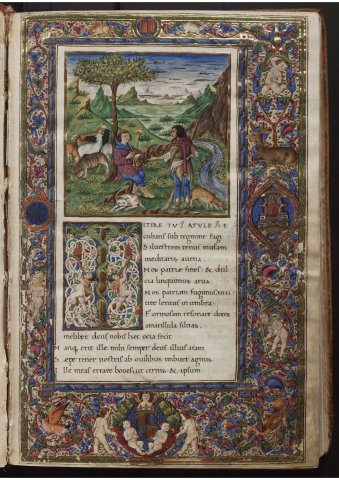 TITIRE TV PATVLE RE
cubans sub tegmine fagi
Siluestrem tenui musam
meditaris auena.
Nos patrie fines: & dul
cia linquimus arua.
Nos patriam fugimus: tu ti
tire lentus in umbra
Formosam resonare doces
amarillida siluas.
melibee deus nobis hec ocia fecit
Nanq; erit ille mihi semper deus: illius aram
Sepe tener nostris ab ouilibus imbuet agnus
Ille meas errare boues: ut cernis & ipsum